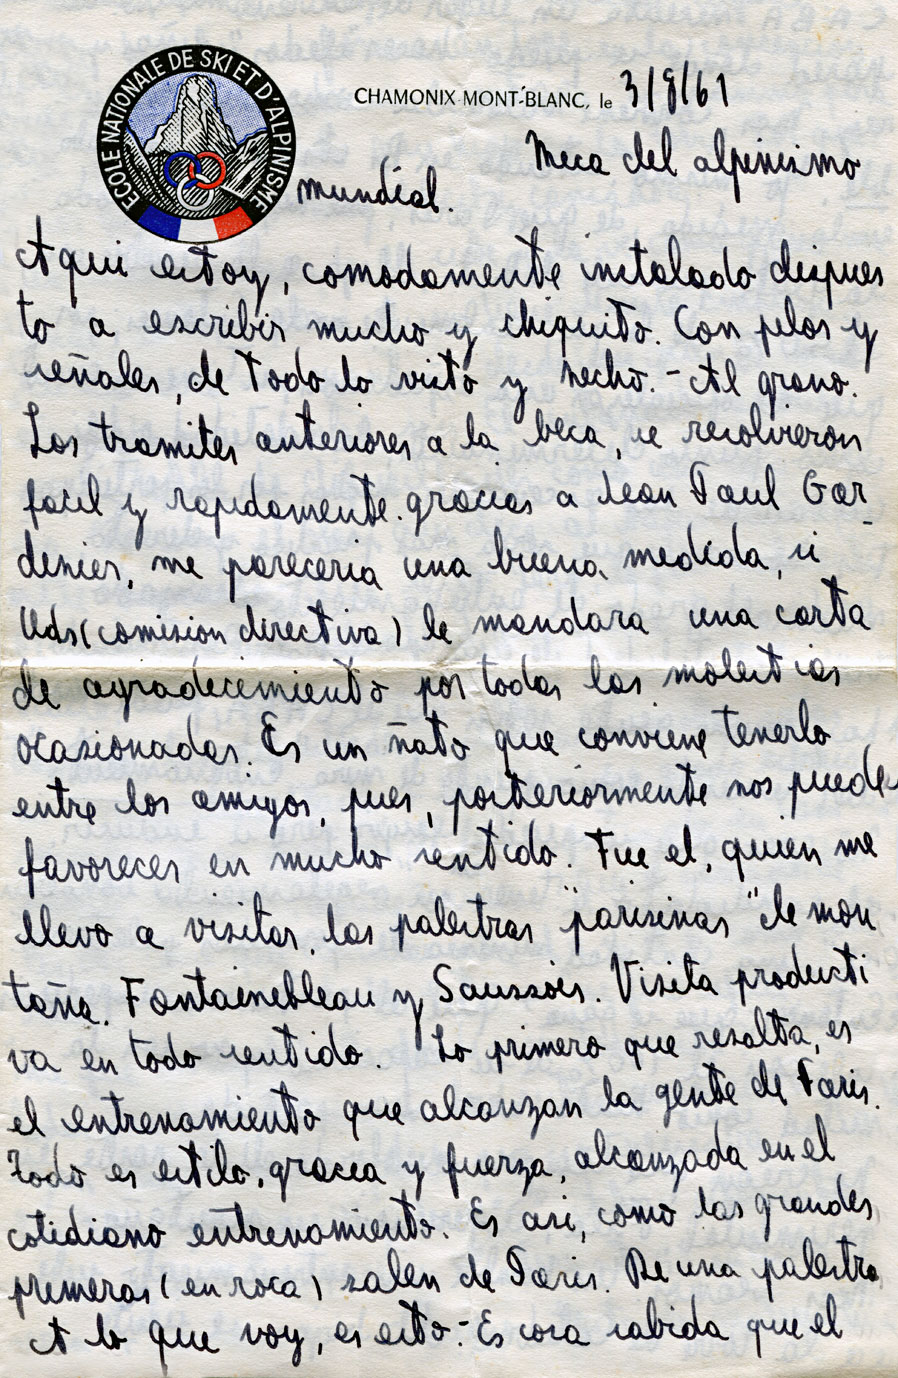 ECOLE NATIONALE DE SKI ET D'ALPINISME
CHAMONIX-MONT-BLANC, le 3/8/61
Meca del alpinismo
mundial.
Aqui estoy, comodamente instalado dispues
to a escribir mucho y chiquito. Con pelos y
señales, de todo lo visto y hecho.- Al grano.
Los tramites anteriores a la beca, se resolvieron
facil y rapidamente. gracias a Jean Paul Gar-
denier, me pareceria una buena medida, si
Uds (comision directiva) le mandara una carta
de agradecimiento por todas las molestias
ocasionadas. Es un ñato que conviene tenerlo
entre los amigos, pues, posteriormente nos puede
favorecer en mucho sentido. Fue el, quien me
llevo a visitar, las palestras "parisinas" de mon
taña. Fontainebleau y Saussois. Visita producti
va en todo sentido. Lo primero que resalta, es
el entrenamiento que alcanzan la gente de Paris.
Todo es estilo, gracia y fuerza, alcanzada en el
cotidiano entrenamiento. Es asi, como las grandes
primeras (en roca) salen de Paris. De una palestra
A lo que voy, es esto:- Es cosa sabida que el